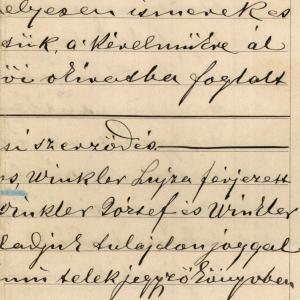 elyesen ismerek es
tük, a Kérelmükre ál
ői okiratba foglalt
si szerződés.
s, Winkler Lujza férjezett
Winkler József és Winkler
ladjuk tulajdonjoggal
mu telekjegyzőkönyvben